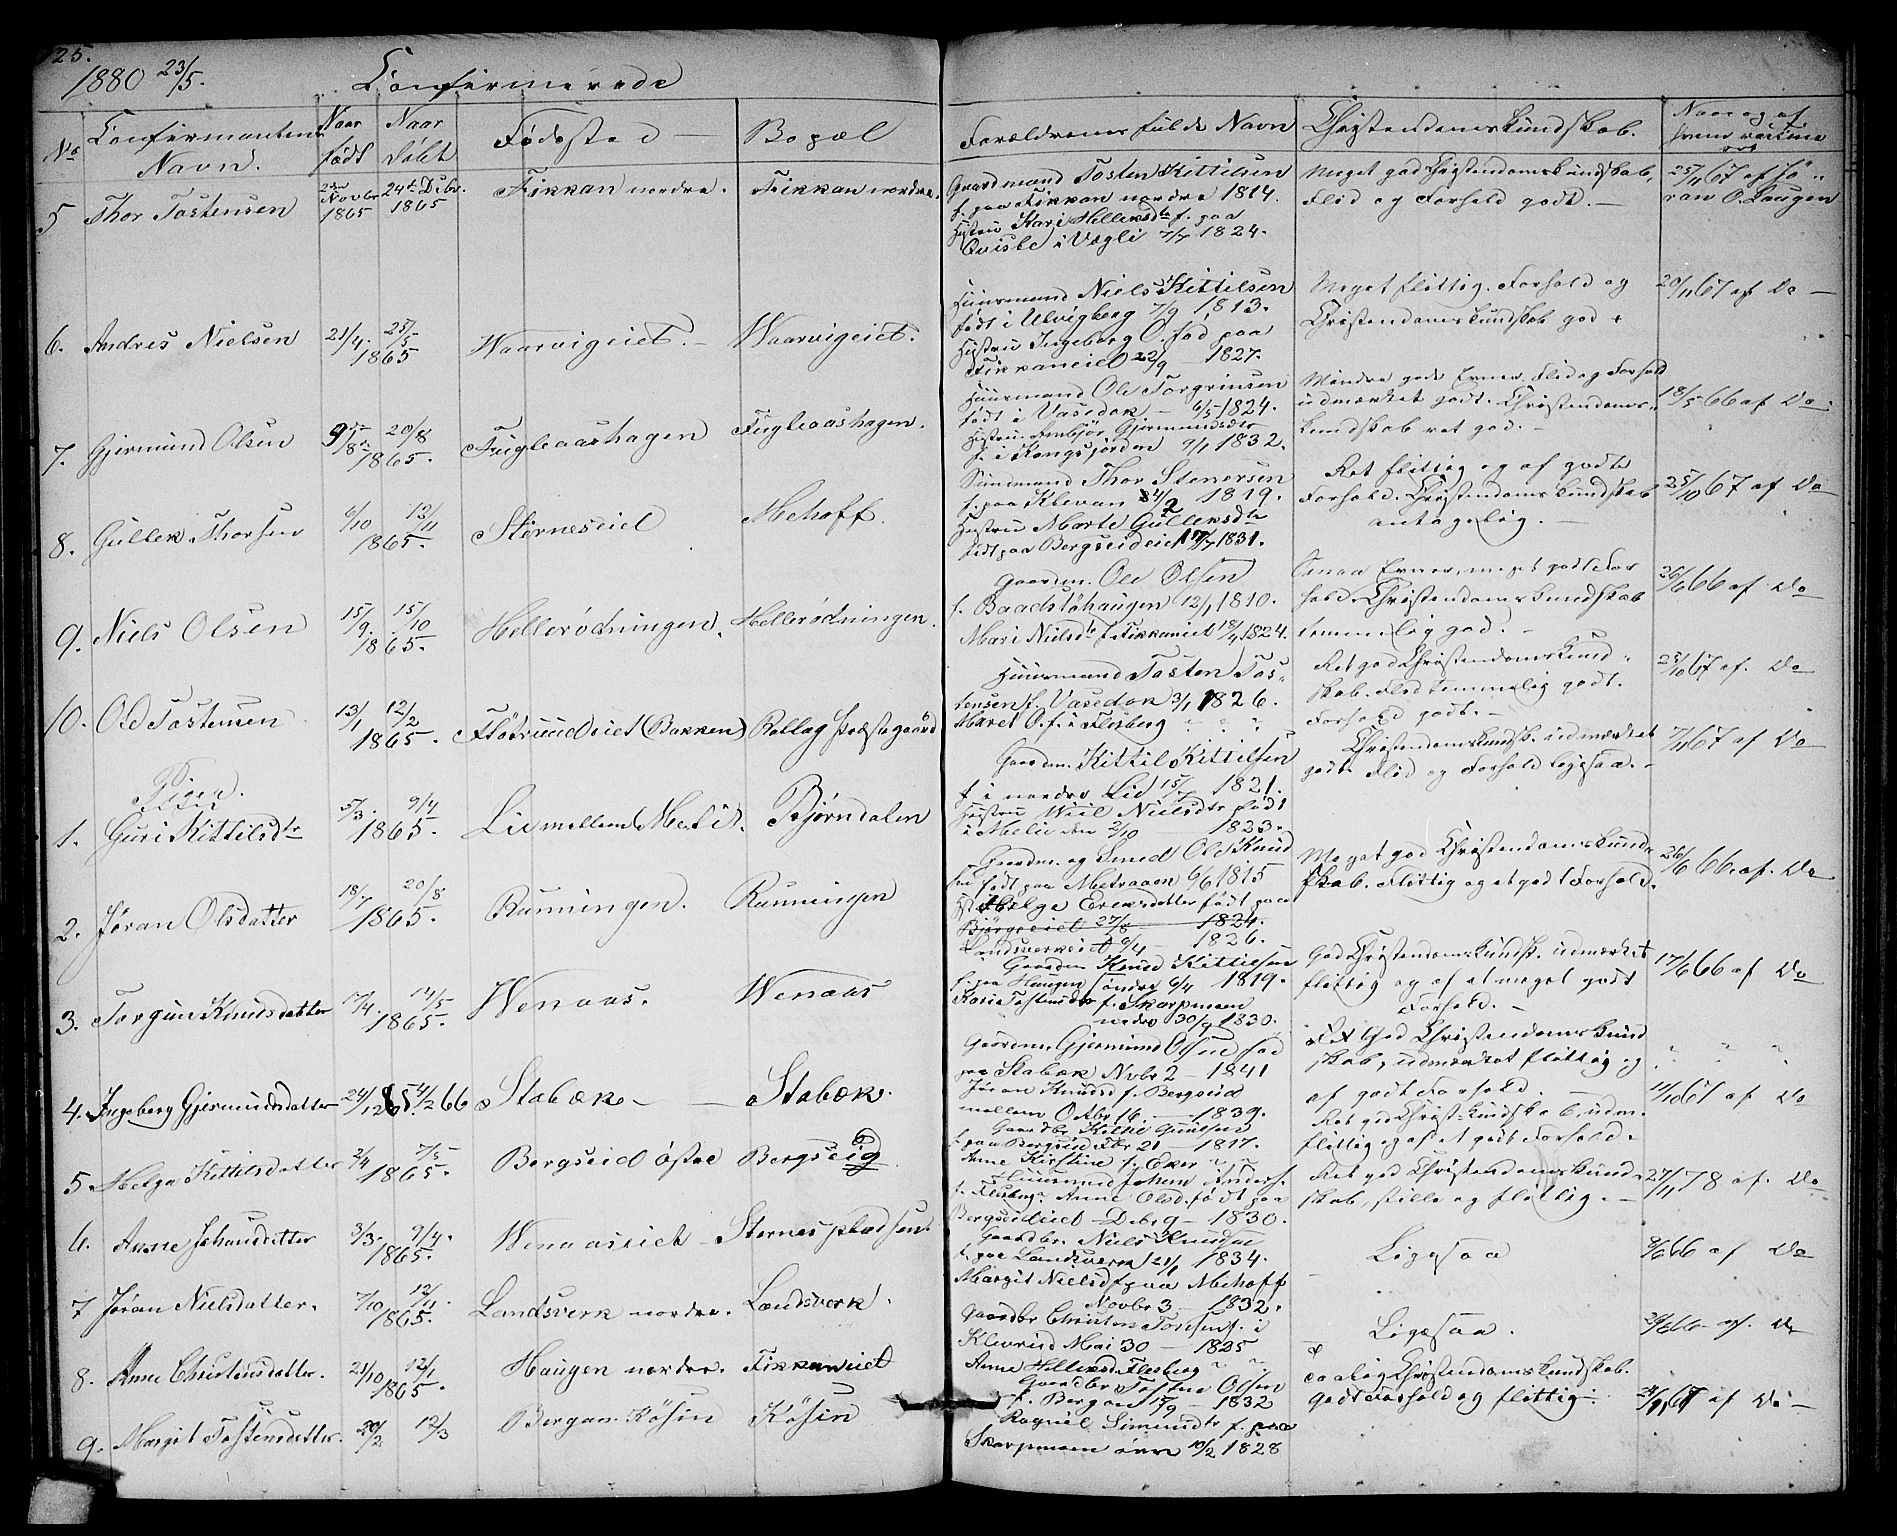 125.
1880 23/5. Confirmerede
No Confirmantens Navn. Naar født Naar Døbt Fødested Bopæl Forældrenes fulde Navn Christendomskundskab. Naar og af hvem vaccineret
5 Thor Tostensen 2den Novbr 1865 24de Decbr. 1865 Fikkan nordre. Fikkan nordre.
Gaardmand Tosten Kittilsen
f. paa Fikkan nordre 1814.
Hustru Kari Helleksdtr f. paa
Qvisle i Vægli 7/7 1824.
Meget god Christendomskundskab,
Flid og Forhold godt. —
25/11 67 af Jö-
ran O. Laugen
6. Andres Nielsen 21/4. 25/5 1865 Waarvigeiet. Waarvigeiet.
Huusmand Niels Kittilsen
født i Ulvigberg 7/9 1813.
Hustru Ingeborg O. fød paa
Fikkaneiet 22/9 1827.
Meget flittig. Forhold og
Christendomskundskab god
20/11 67 af Do
7. Gjermund Olsen 9/8 20/8 1865. Fugleaashagen Fugleaashagen.
Huusmand Ole Torgrimsen
født i Vasedok — 6/5 1824.
Hustru Anbjør Gjermundsdtr
f. i Kongsjorden 9/1 1832.
Mindre gode Evner. Flid og Forhold
udmærket godt. Christendoms-
kundskab ret god. —
18/5 66 af Do
8. Gullek Thorsen 6/10 12/11 1865. Sterneseiet Mehoff.
Thor Stenersen
f. paa Klevan 4/2 1819.
Hustru Marte Gulleksdtr
født paa Bergseideiet 1831.
Ret flittig og af godt
Forhold. Christendomskundskab
antagelig. —
25/10 67 af Do
9. Niels Olsen 15/9. 15/10 1865. Hellerødningen. Hellerødningen.
Gaardm. Ole Olsen
f. Baadstøhaugen 12/1 1810.
Mari Nielsdtr f. Fikkaneiet 18/4 1824.
Smaa Evner, meget godt For
hold. Christendomskundskab
temmelig god. —
26/6 66 af Do
10. Ole Tostensen 13/1 12/2 1865. Fløtruudeiet (Bakken) Rollag Præstegaard
Huusmand Tosten Tos-
tensen f. Vasedok 3/1 1826.
Maret O. f. i Flesberg " " "
Ret god Christendomskund-
skab. Flid temmelig godt.
Forhold godt. —
25/10 67 af. Do
Piger.
1. Guri Kittilsdtr 5/3. 9/4 1865. Lie mellem Melie. Bjørndalen
Gaardm. Kittil Kittilsen
f. i nordre Lid 15/7 1821.
Hustru Nielsdtr født
i Melie den 2/10 1823.
Christendomskundsk. udmærket
godt. Flid og Forhold ligesaa. —
7/11 67 af Do
2. Jøran Olsdatter 18/7 20/8 1865. Runningen. Runningen
Gaardm. og Smed Ole Knud
sen født paa Metraaen 6/6 1815
Helge Eriksdatter født paa
Bjørgeeiet 27/8 1824.
Landsverkeiet 6/4 — 1826.
Meget god Christendomskund-
skab. Flittig og et godt Forhold.
26/6 66. af. Do
3. Torgun Knudsdatter 17/4. 14/5 1865. Wenaas. Wenaas
Gaardm Knud Kittilsen
f. paa Haugen søndre 6/4 1819.
Karie Tostensdtr f. Skarpmoen
nedre 30/9 1830.
God Christendomskundsk. udmærket
flittig og af et meget godt
Forhold. —
17/6 66 af Do
4. Ingeberg Gjermundsdatter 24/12 65. 4/2 66 Stabæk — Stabæk.
Gaardm. Gjermund Olsen fød
paa Stabæk Novbr 2 — 1841
Jøran Knudsd f. Bergseid
mellem Octbr 16. — 1839.
Ret God Christendomskund
skab, udmærket flittig og
af godt Forhold. —
" " "
5. Helga Kittilsdatter 2/4 7/5 1865. Bergseid østre Bergseid
Gaardbr Kittil Gunulsen
f. paa Bergseid Fbr 21 1817.
Anne Kirstine f. Eker " "
Ret god Christ.kundskab, udm.
flittig og af et godt Forhold.
11/10 67 af Do
6. Anne Johansdatter 3/3. 9/4. 1865. Wenaaseiet Sternespladsen.
Huusmand Johan Anders.
f. Flesberg. Anne Olsd. født paa
Bergseideiet — Debr 9 — 1830.
Ret god Christendomskund-
skab, stille og flittig. —
27/11 78 af. Do
7 Jøran Nielsdatter. 7/10 12/11. 1865. Landsverk nordre. Landsverk.
Gaardbr. Niels Knudsen
f. paa Landsverk 21/1 1834.
Margit Nielsd f paa Mehoff
Novbr 3. 1832.
Ligesaa
8/6 66 af Do
8. Anne Christensdatter. 21/10 12/11 1865. Haugen nordre. Fikkaneiet
Gaardbr Christen Torsens. f. i
Klevrud Mai 30 — 1825
Anne Helleksd. Flesberg " "
Ligesaa.
29/6 66 af. Do
9. Margit Tostensdatter. 20/2 12/3 Bergan. Kösin Kösin
Gaardbr Tosten Olsen
f. Bergan 17/9 — 1832
Ragnil Simundtr f. paa
Skarpmoen øvre 10/2 1828
Daalig Christendomskundskab.
Godt Forhold og flittig.
67 af Do —